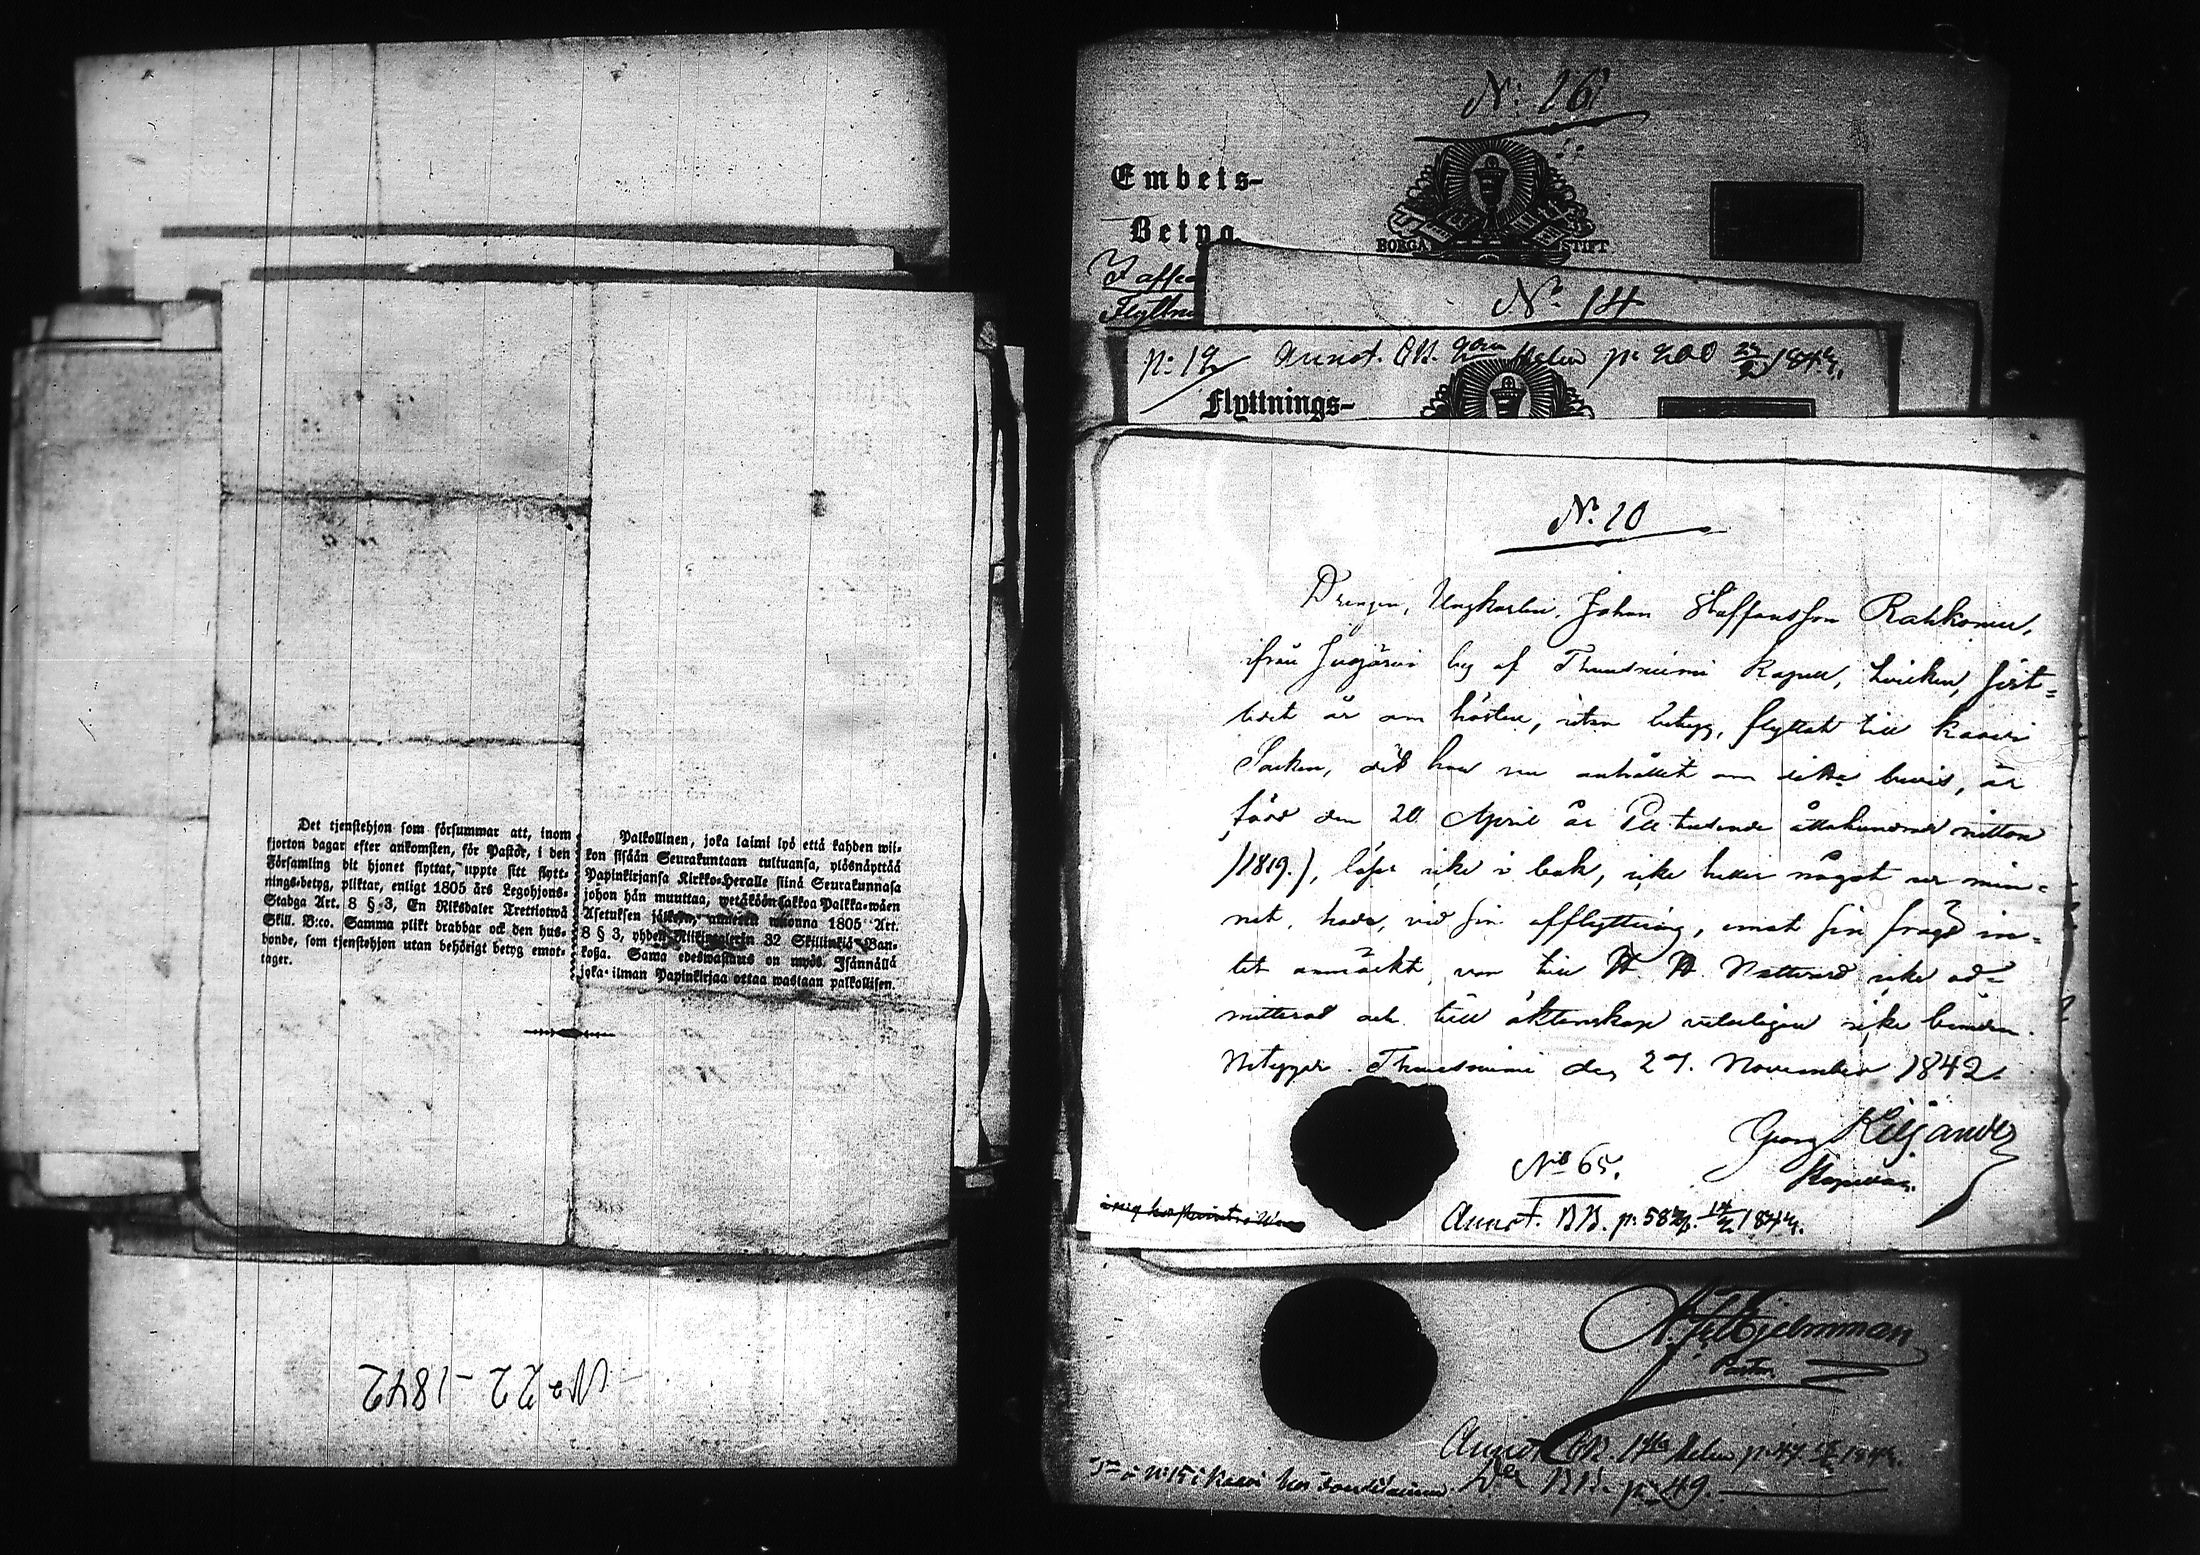 Det tjenstehjon som försummar att, inom
fjorton dagar efter ankomsten, för Pastor, i den
Församling dit hjonet flyttat, uppte sitt flytt-
nings-betyg, pliktar, enligt 1805 års Legohjons-
Stadga Art. 8 § 3, En Riksdaler Trettiotwå
Skill. B:co. Samma plikt drabbar ock den hus-
bonde, som tjenstehjon utan behörigt betyg emot-
tager.
Palkollinen, joka laimi lyö että kahden wii-
kon sisään Seurakuntaan tultuansa, ylösnäyttää
Papinkirjansa Kirkko-Heralle siinä Seurakunnasa
johon hän muuttaa, wetäköön sakkoa Palkka-wäen
Asetuksen jälkeen, wuonna 1805 Art.
8 § 3, yhden Riikintalerin 32 Skillinkiä Ban-
kosa. Sama edeswastaus on myös Isännällä
joka ilman Papinkirjaa ottaa wastaan palkollisen.
No 22 - 1842
N: 16
Embets-
Betyg.
BORGÅ STIFT
Flyttn
N: 14
N: 19 Annot. p: 200
Flyttnings-
N: 20
Drengen, Ungkarlen, Johan Staffansson Rahkonen,
ifrån Juojärvi by af Thuusniemi Kapell, hvilken, sist-
lidet år om hösten, utan betyg, flyttat till Kaavi
Socken, der han nu anhållit om detta bevis, är
född den 20 April år Ett tusende åttahundrade nitton
(1819.), läser icke i bok, icke heller något ur min-
net, hade, vid sin afflyttning, emot sin frägd in-
tet anmärkt, var till H. H. Nattvard icke ad-
mitterad och till äktenskap veterligen icke bunden.
Betygar. Thuusniemi den 27. November 1842.
Georg Kiljander
Kapellan.
No 65.
Annot. BB. p: 582
Hjelmman
Past.
Annot. p: 47
BB. p: 49.